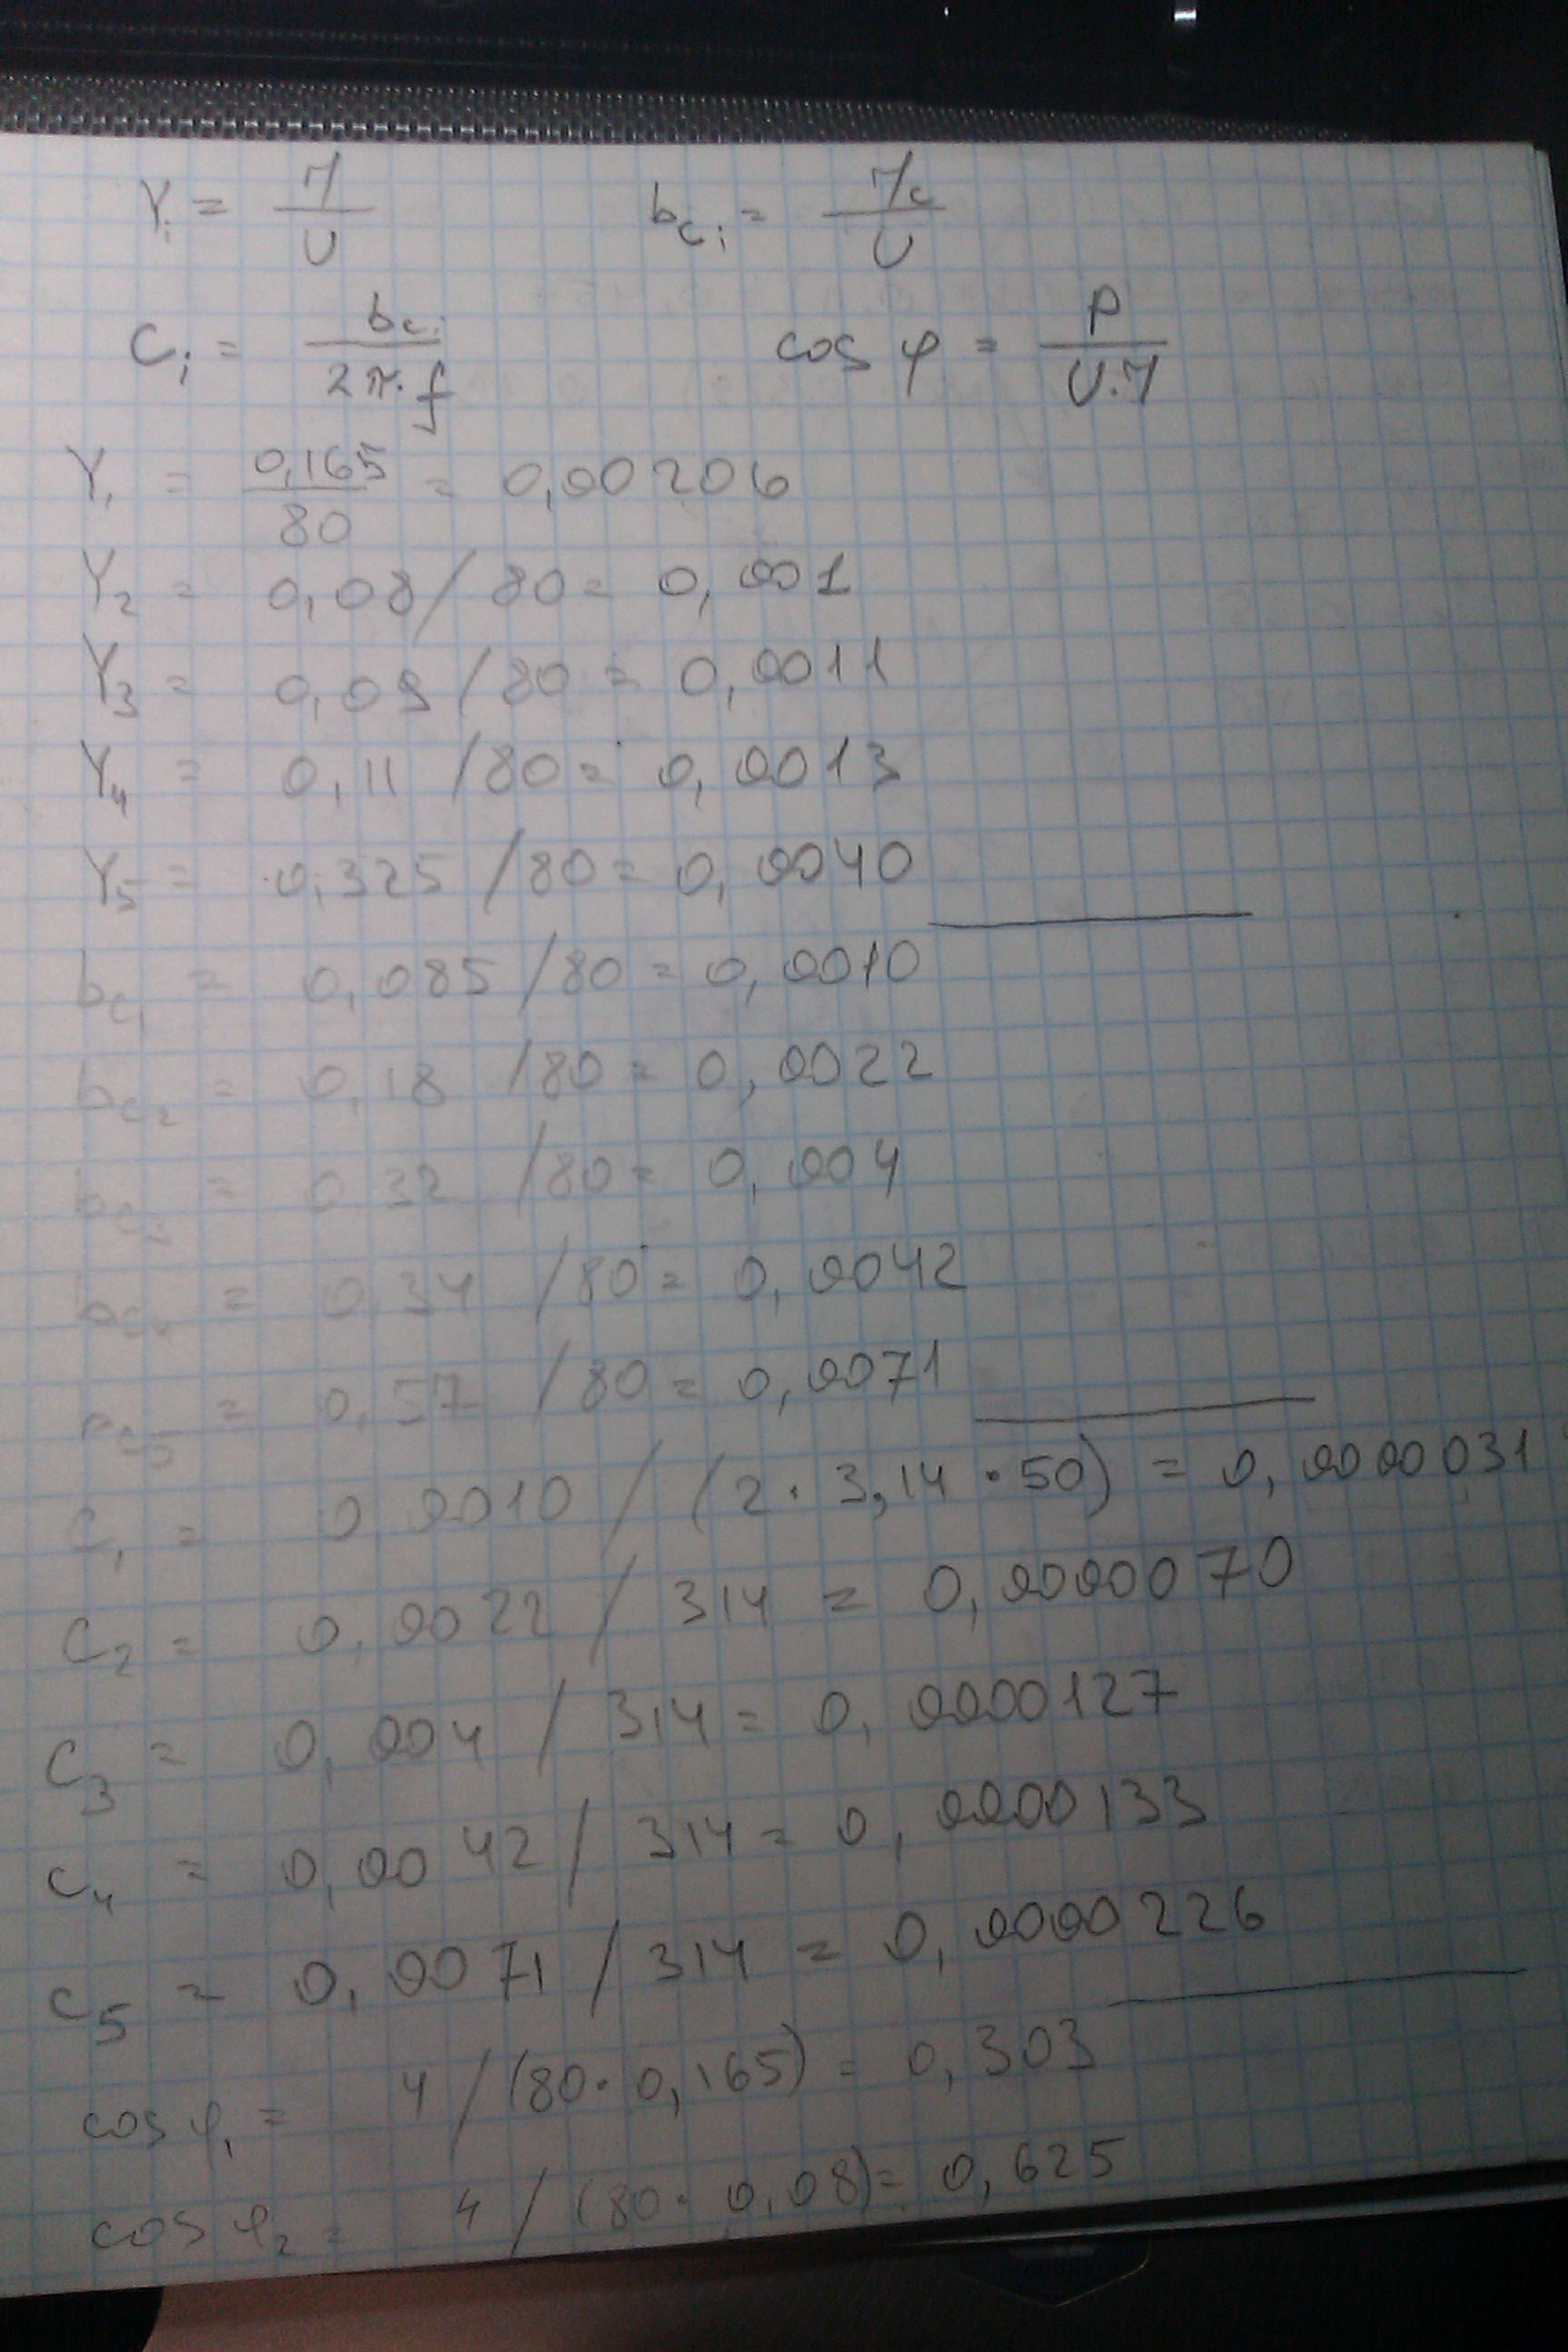 Y_i = I / U    b_ci = I_c / U
C_i = b_ci / 2π·f    cos φ = P / U·I
Y_1 = 0,165 / 80 = 0,00206
Y_2 = 0,08 / 80 = 0,001
Y_3 = 0,09 / 80 = 0,0011
Y_4 = 0,11 / 80 = 0,0013
Y_5 = 0,325 / 80 = 0,0040
b_c1 = 0,085 / 80 = 0,0010
b_c2 = 0,18 / 80 = 0,0022
b_c3 = 0,32 / 80 = 0,004
b_c4 = 0,34 / 80 = 0,0042
b_c5 = 0,57 / 80 = 0,0071
C_1 = 0,0010 / (2 · 3,14 · 50) = 0,0000031
C_2 = 0,0022 / 314 = 0,0000070
C_3 = 0,004 / 314 = 0,0000127
C_4 = 0,0042 / 314 = 0,0000133
C_5 = 0,0071 / 314 = 0,0000226
cos φ_1 = 4 / (80 · 0,165) = 0,303
cos φ_2 = 4 / (80 · 0,08) = 0,625